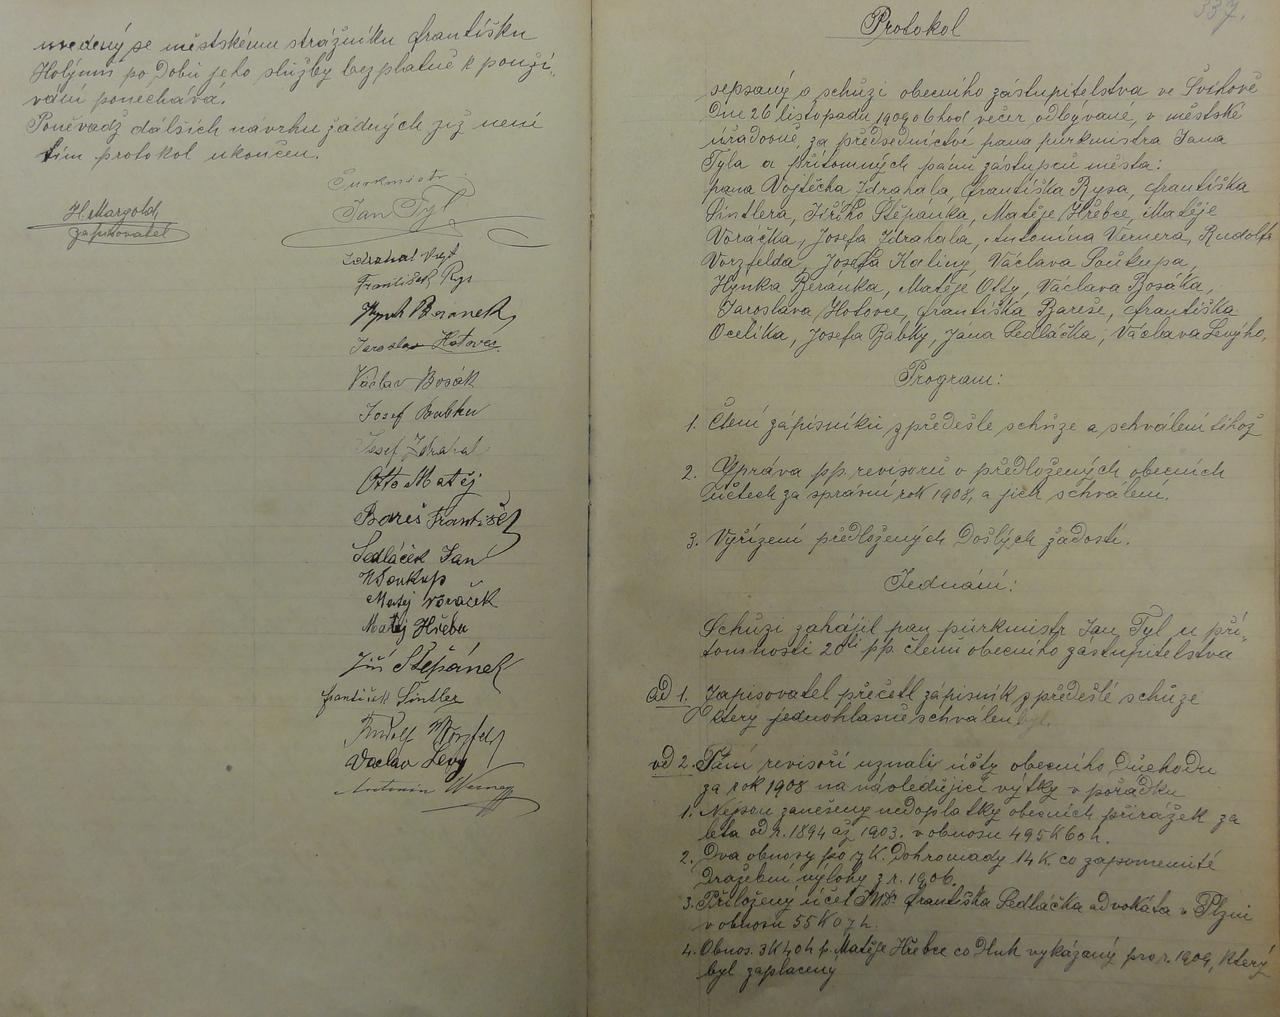 uvedený se městskému strážníku Františku
Holýmu po dobu jeho služby bezplatně k použí-
vání ponechává.
Poněvadž dálších návrhu žádných již není
tím protokol ukončen.
Purkmistr
Jan Tyl
H. Margold
zapisovatel
Zdrahal Vojt
František Rys
Hynek Beranek
Jaroslav Hotovec
Václav Bosák
Josef Babka
Josef Zdrahal
Otto Matěj
Bareš František
Sedláček Jan
W Soukup
Matěj Voráček
Matěj Hřebec
Jiří Štěpánek
František Šintler
Rudolf Worzfeld
Vaclav Levy
Antonin Werner
337.
Protokol
sepsaný o schůzi obecního zástupitelstva ve Švihově
Dne 26 listopadu 1909 o 6 hod večer odbývané, v městské
úřadovně za předsednictví pana purkmistra Jana
Tyla a přítomných pánů zástupců města:
pana Vojtěcha Zdrahala, Františka Rysa, Františka
Šintlera, Jiřího Štěpánka, Matěje Hřebce, Matěje
Voráčka, Josefa Zdrahala, Antonína Vernera, Rudolfa
Vorzfelda, Josefa Kaliny, Václava Soukupa,
Hynka Beranka, Matěje Otty, Václava Bosáka,
Jaroslava Hotovce, Františka Bareše, Františka
Ocelíka, Josefa Babky, Jána Sedláčka, Václava Levýho,
Program:
1. Čtení zápisníku z předešlé schůze a schválení téhož
2. Zpráva pp. revisorů o předložených obecních
účtech za správní rok 1908, a jich schválení.
3. Vyřízení předložených Došlých žadostí.
Jednání:
Schůzi zahájil pan purkmistr Jan Tyl u pří-
tomnosti 20ti pp. členů obecního zastupitelstva
ad 1. Zapisovatel přečetl zápisník z předešlé schůze
který jednohlasně schválen byl.
ad 2. Páni revisoři uznali účty obecního Důchodu
za rok 1908 na následující výtky v pořádku
1. Nejsou zanešeny nedoplatky obecních přirážek za
léta od r. 1894 až 1903. v obnosu 495 K 60 h.
2. Dva obnosy po 7 K. Dohromady 14 K. co zapomenité
Dražební výlohy z r. 1906.
3. Přiložený účet JUDr Františka Sedláčka advokáta v Plzni
v obnosu 55 K 07 h.
4. Obnos. 3 K 40 h p. Matěje Hřebce co Dluh vykázaný pro r. 1909, který
byl zaplacený